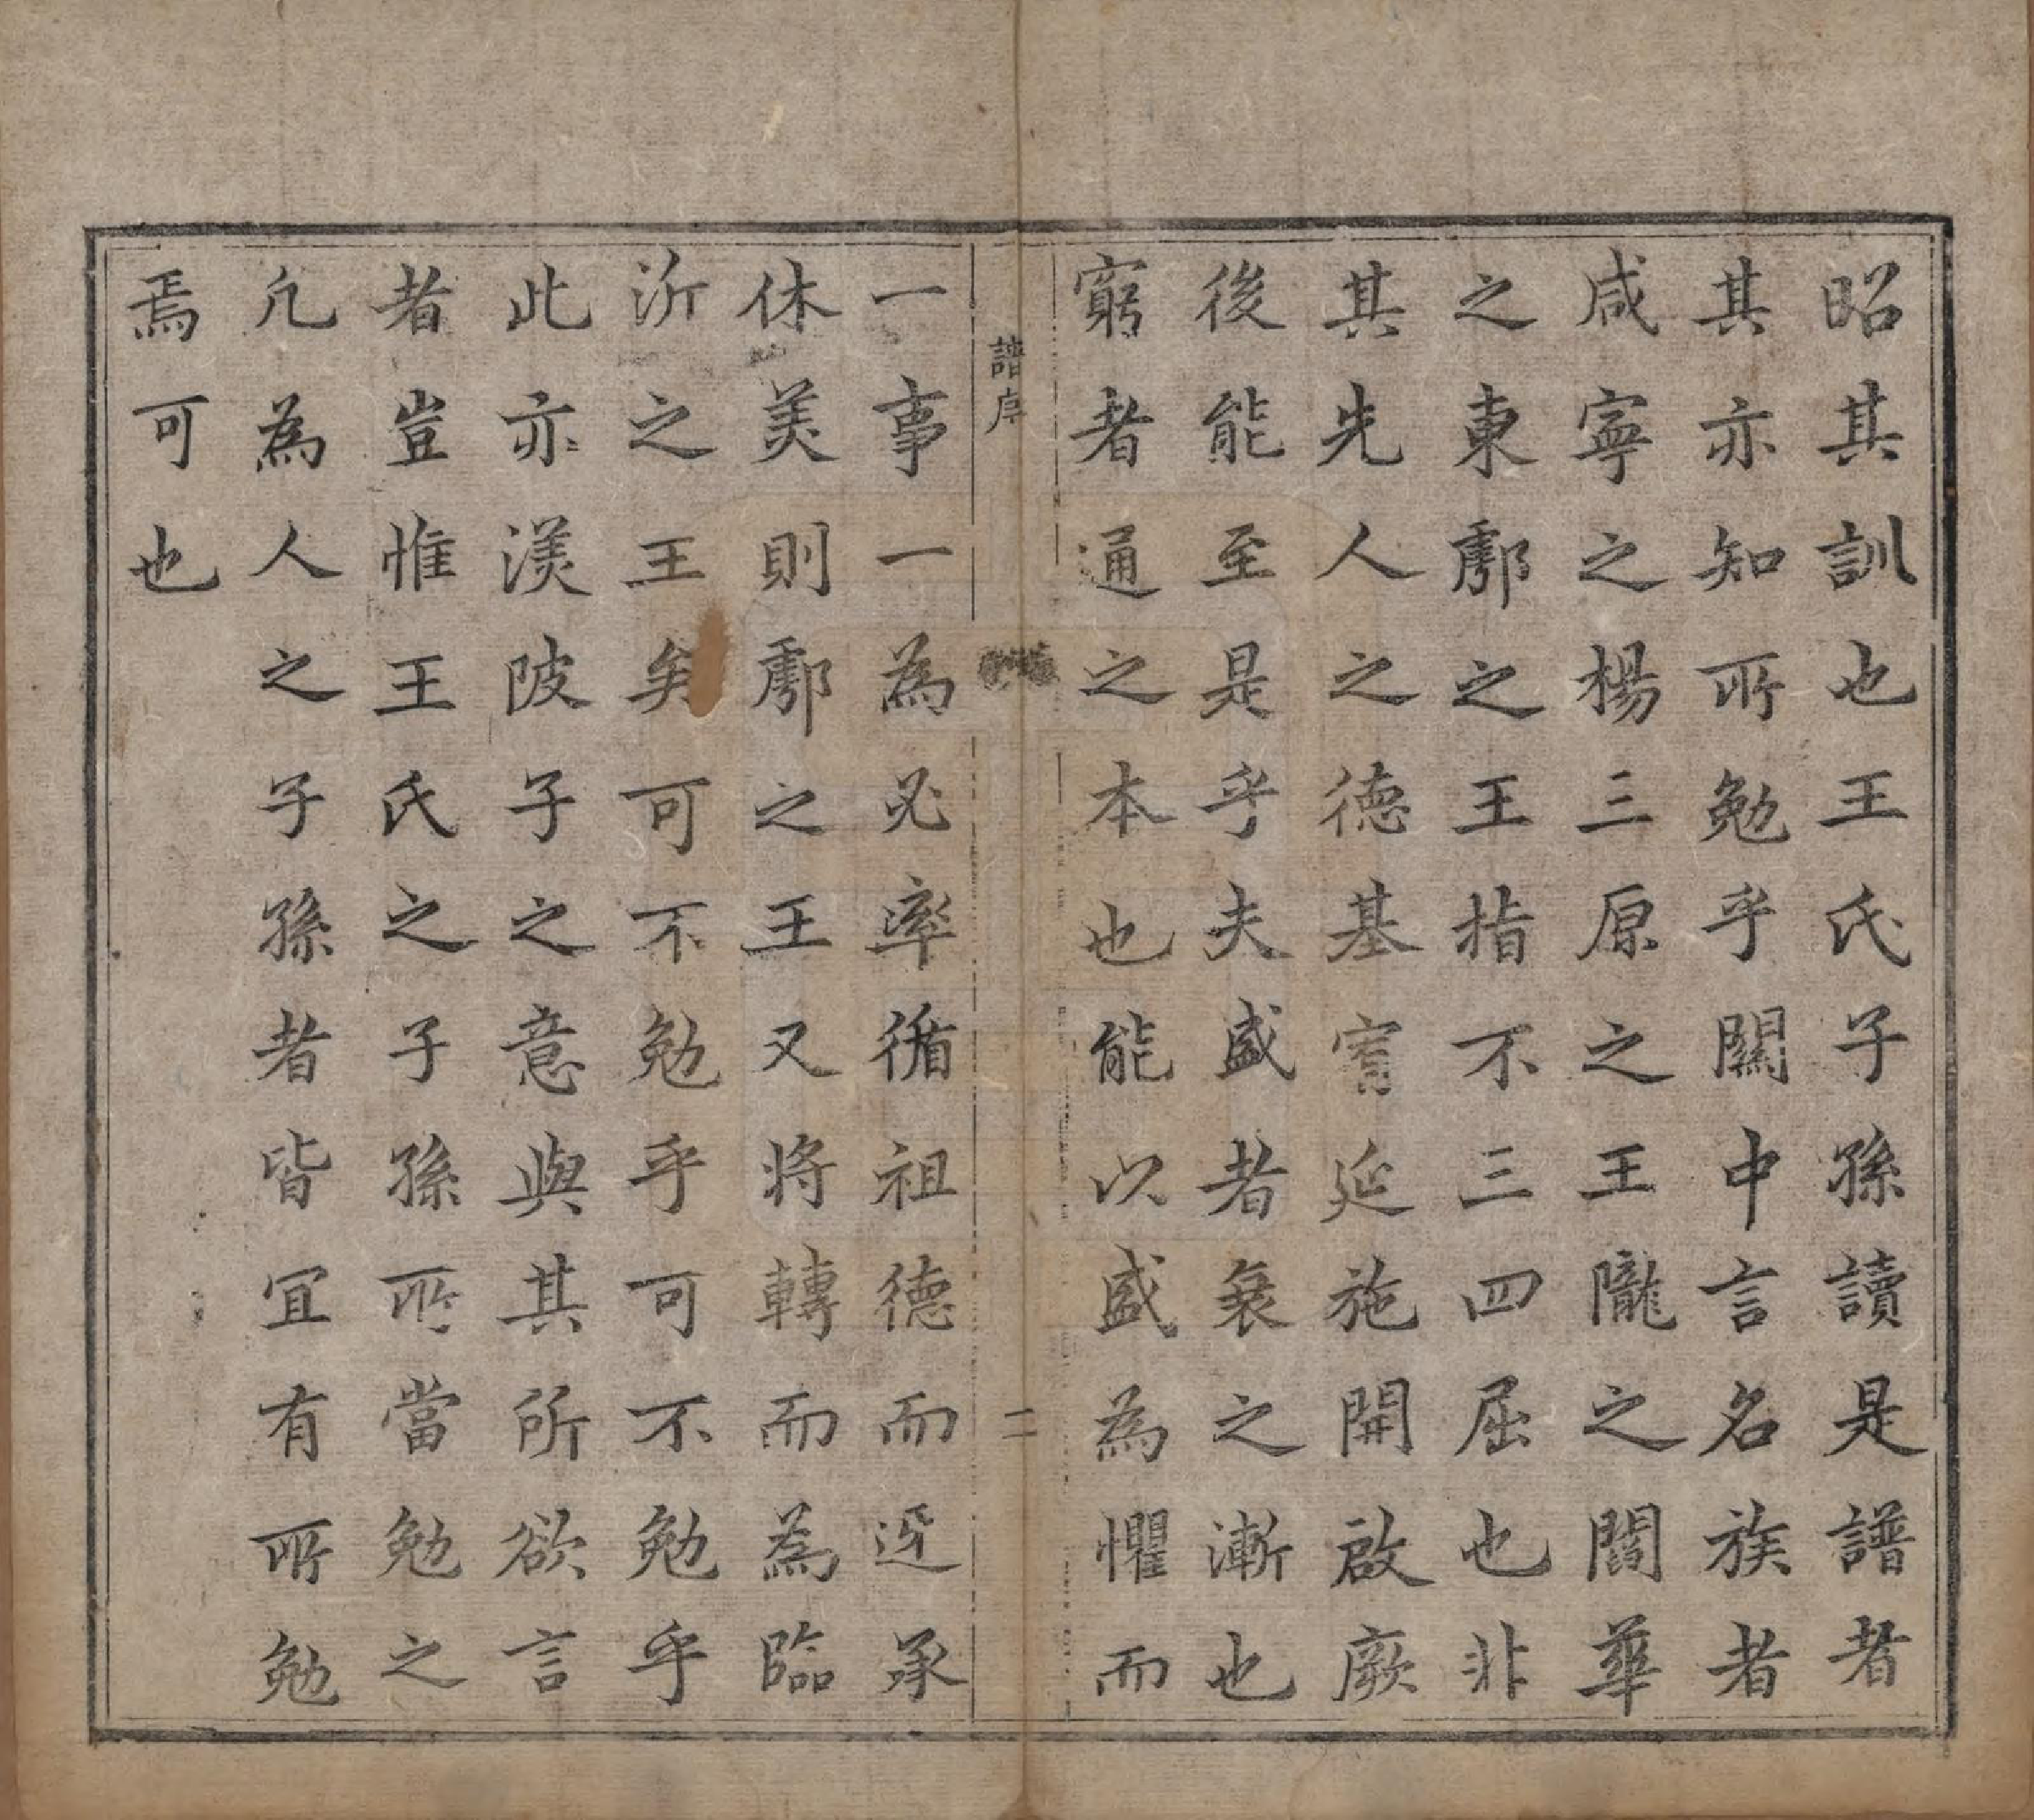 昭其訓也王氏子孫讀是譜者
其亦知所勉乎關中言名族者
咸寧之楊三原之王隴之閻華
之東鄠之王指不三四屈也非
其先人之德基寳延施開啟厥
後能至是乎夫盛者衰之漸也
窮者通之本也能以盛為懼而
譜序
二
一事一為必率循祖德而迓承
休美則鄠之王又將轉而為臨
沂之王矣可不勉乎可不勉乎
此亦渼陂子之意與其所欲言
者豈惟王氏之子孫所當勉之
凢為人之子孫者皆宜有所勉
焉可也